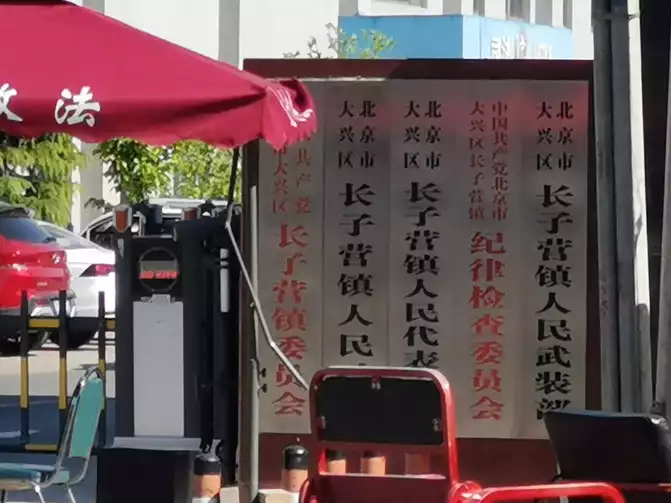 法
共产党
大兴区
长子营镇委员会
北京市
大兴区
长子营镇人民
北京市
大兴区
长子营镇人民代表
中国共产党北京市
大兴区长子营镇
纪律检查委员会
北京市
大兴区
长子营镇人民武装部